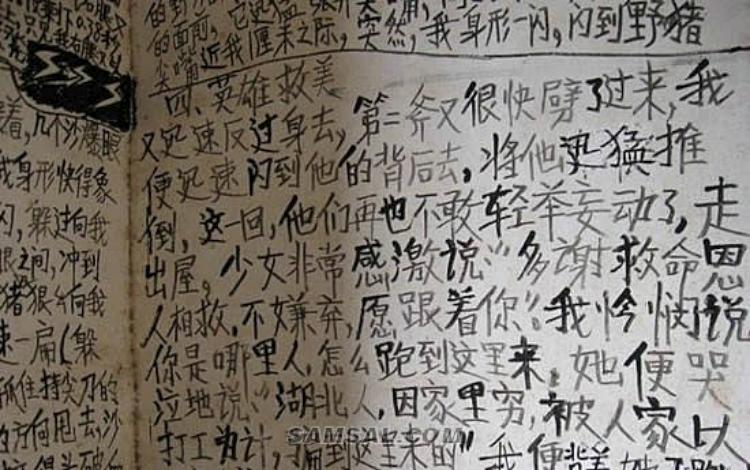 的面前,它迅猛
尖嘴
近我厘米之际,突然,我身形一闪,闪到野猪
四、英雄救美
第二斧又很快劈了过来,我
又迅速反过身去,
便迅速闪到他的背后去,将他迅猛推
倒,这一回,他们再也不敢轻举妄动了,走
出屋,少女非常感激说:“多谢救命恩
人相救,不嫌弃,愿跟着你”。我怜悯说
你是哪里人,怎么跑到这里来,她便哭
泣地说:“湖北人,因家里穷,被人家以
打工为计,拐到这里来的”我便背着她
着,几个沙爆眼
我身形快得象
闪,躲过向我
眼之间,冲到
猪狠狠向我
速一扁(躲
抓住持尖刀的
方向甩去,沙
SAMSAL.COM